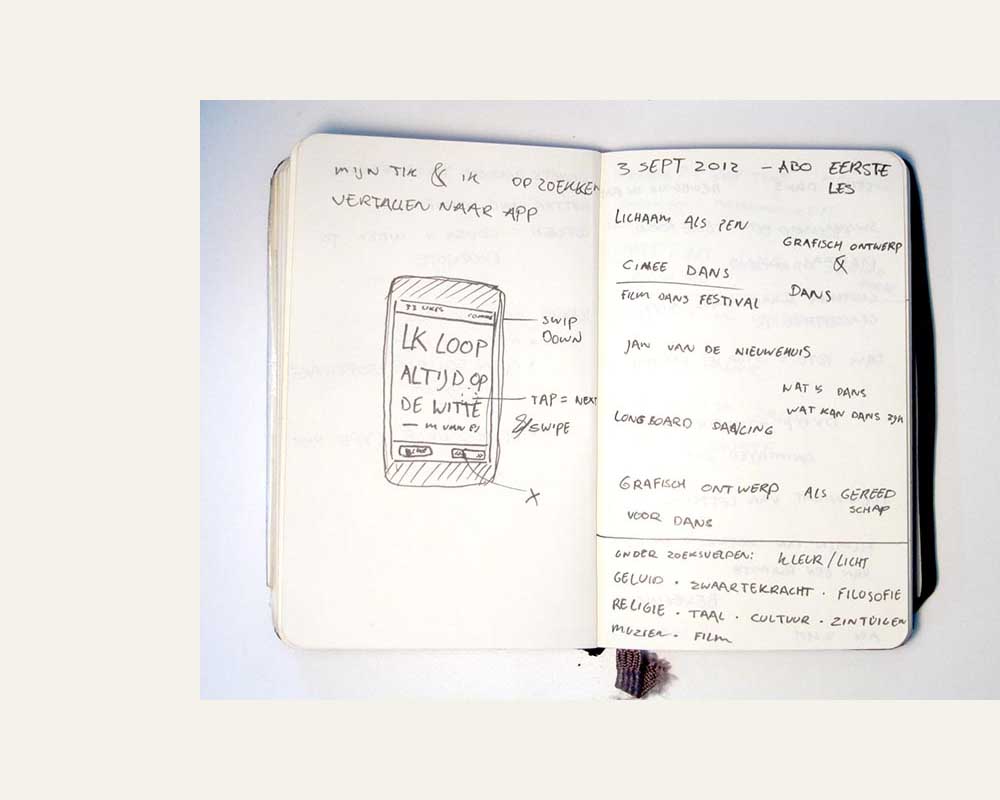 MIJN TIK & IK OPZOEKKEN
VERTALLEN NAAR APP
33 LIKES
IK LOOP
ALTIJD OP
DE WITTE
SWIP
DOWN
TAP = NEXT
SWIPE
X
3 SEPT 2012 - ABO EERSTE
LES
LICHAAM ALS PEN
GRAFISCH ONTWERP
&
DANS
CINEE DANS
FILM DANS FESTIVAL
JAN VAN DE NIEUWEHUIS
WAT IS DANS
WAT KAN DANS ZIJN
LONGBOARD DANCING
GRAFISCH ONTWERP ALS GEREED
SCHAP
VOOR DANS
ONDERZOEKSVELDEN: KLEUR/LICHT
GELUID · ZWAARTEKRACHT · FILOSOFIE
RELIGIE · TAAL · CULTUUR · ZINTUIGEN
MUZIEK · FILM